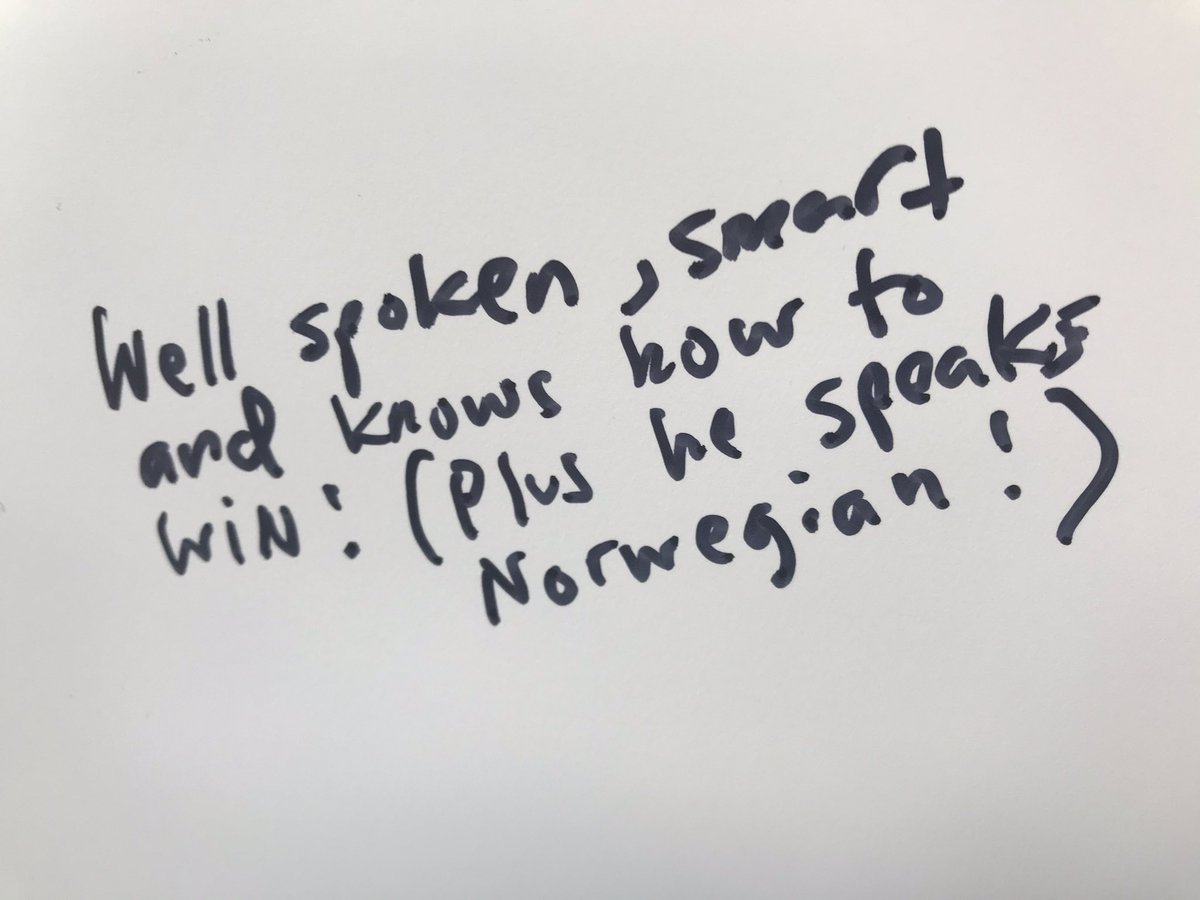 Well spoken, smart
and knows how to
WIN! (Plus he speaks
Norwegian!)